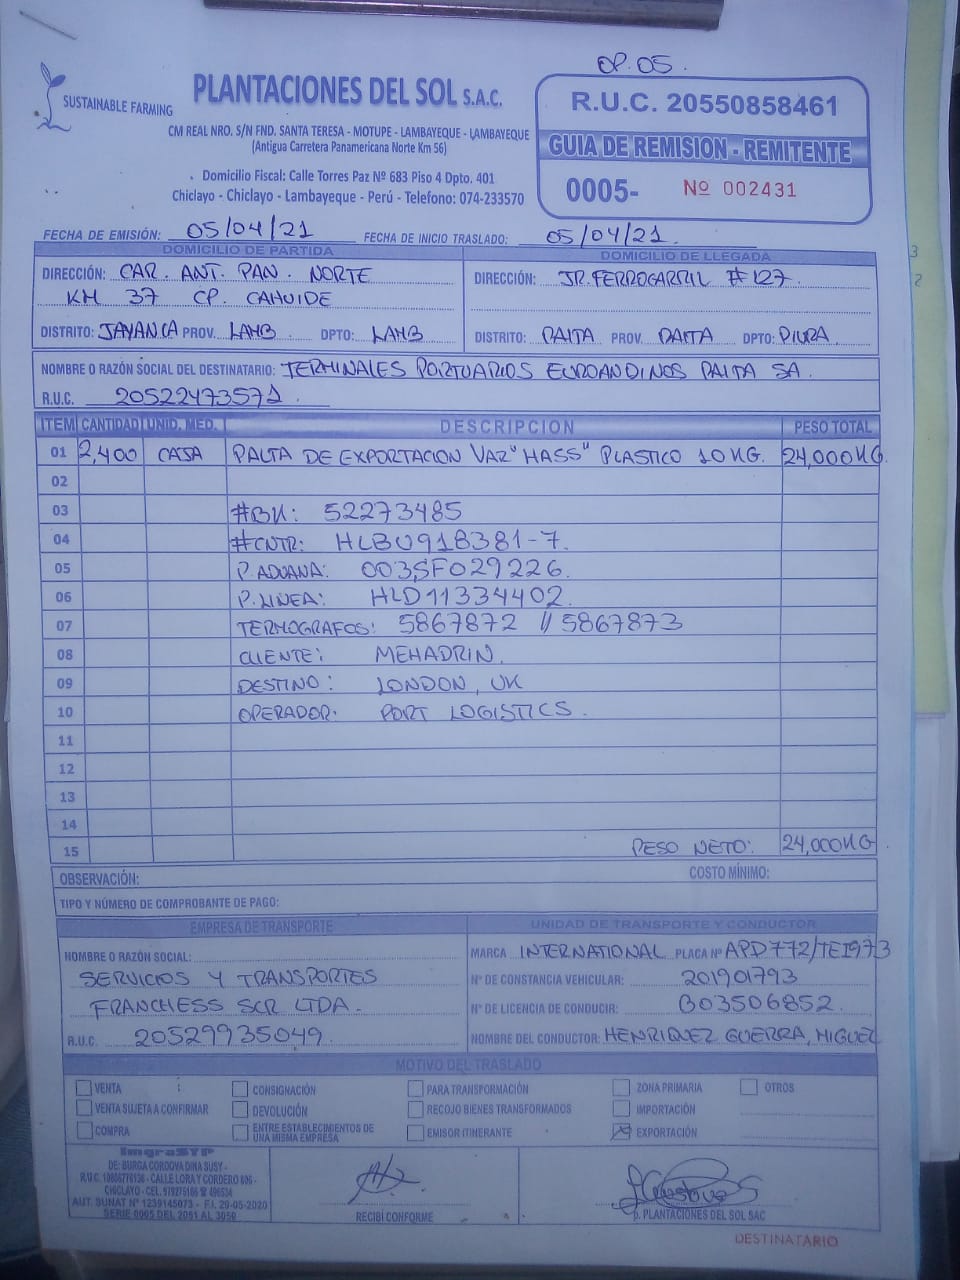 OP. 05.
SUSTAINABLE FARMING
PLANTACIONES DEL SOL S.A.C.
CM REAL NRO. S/N FND. SANTA TERESA - MOTUPE - LAMBAYEQUE - LAMBAYEQUE
(Antigua Carretera Panamericana Norte Km 56)
Domicilio Fiscal: Calle Torres Paz Nº 683 Piso 4 Dpto. 401
Chiclayo - Chiclayo - Lambayeque - Perú - Telefono: 074-233570
R.U.C. 20550858461
GUIA DE REMISION - REMITENTE
0005- Nº 002431
FECHA DE EMISIÓN: 05/04/21 FECHA DE INICIO TRASLADO: 05/04/21.
DOMICILIO DE PARTIDA
DIRECCIÓN: CAR. ANT. PAN. NORTE
KM 37 CP. CAHUIDE
DISTRITO: JAYANCA PROV. LAMB. DPTO: LAMB
DOMICILIO DE LLEGADA
DIRECCIÓN: JR. FERROCARRIL #127.
DISTRITO: PAITA PROV. PAITA DPTO: PIURA
NOMBRE O RAZÓN SOCIAL DEL DESTINATARIO: TERMINALES PORTUARIOS EUROANDINOS PAITA SA.
R.U.C. 20522473571.
ITEM CANTIDAD UNID. MED. DESCRIPCION PESO TOTAL
01 2,400 CAJA PALTA DE EXPORTACION VAR "HASS" PLASTICO 10 KG. 24,000KG.
02
03 #BK: 52273485
04 #CNTR: HLBU918381-7.
05 P. ADUANA: 003SF029226.
06 P. LINEA: HLD11334402.
07 TERMOGRAFOS: 5867872 // 5867873
08 CLIENTE: MEHADRIN.
09 DESTINO: LONDON, UK
10 OPERADOR: PORT LOGISTICS.
11
12
13
14
15 PESO NETO: 24,000KG
OBSERVACIÓN: COSTO MÍNIMO:
TIPO Y NÚMERO DE COMPROBANTE DE PAGO:
EMPRESA DE TRANSPORTE
NOMBRE O RAZÓN SOCIAL:
SERVICIOS Y TRANSPORTES
FRANCHESS SCR LTDA.
R.U.C. 20529935049.
UNIDAD DE TRANSPORTE Y CONDUCTOR
MARCA INTERNATIONAL PLACA Nº APD772/TEI973
Nº DE CONSTANCIA VEHICULAR: 201901793
Nº DE LICENCIA DE CONDUCIR: B03506852.
NOMBRE DEL CONDUCTOR: HENRIQUEZ GUERRA, MIGUEL
MOTIVO DEL TRASLADO
VENTA CONSIGNACIÓN PARA TRANSFORMACIÓN ZONA PRIMARIA OTROS
VENTA SUJETA A CONFIRMAR DEVOLUCIÓN RECOJO BIENES TRANSFORMADOS IMPORTACIÓN
COMPRA ENTRE ESTABLECIMIENTOS DE UNA MISMA EMPRESA EMISOR ITINERANTE EXPORTACIÓN
ImgraSTP
DE: BURGA CORDOVA DINA SUSY -
CALLE LORA Y CORDERO 606 -
CHICLAYO - CEL. 979275186 ☎ 496534
AUT. SUNAT Nº 1239145073 - F.I. 29-05-2020
SERIE 0005 DEL 2051 AL 3050
RECIBÍ CONFORME
p. PLANTACIONES DEL SOL SAC
DESTINATARIO